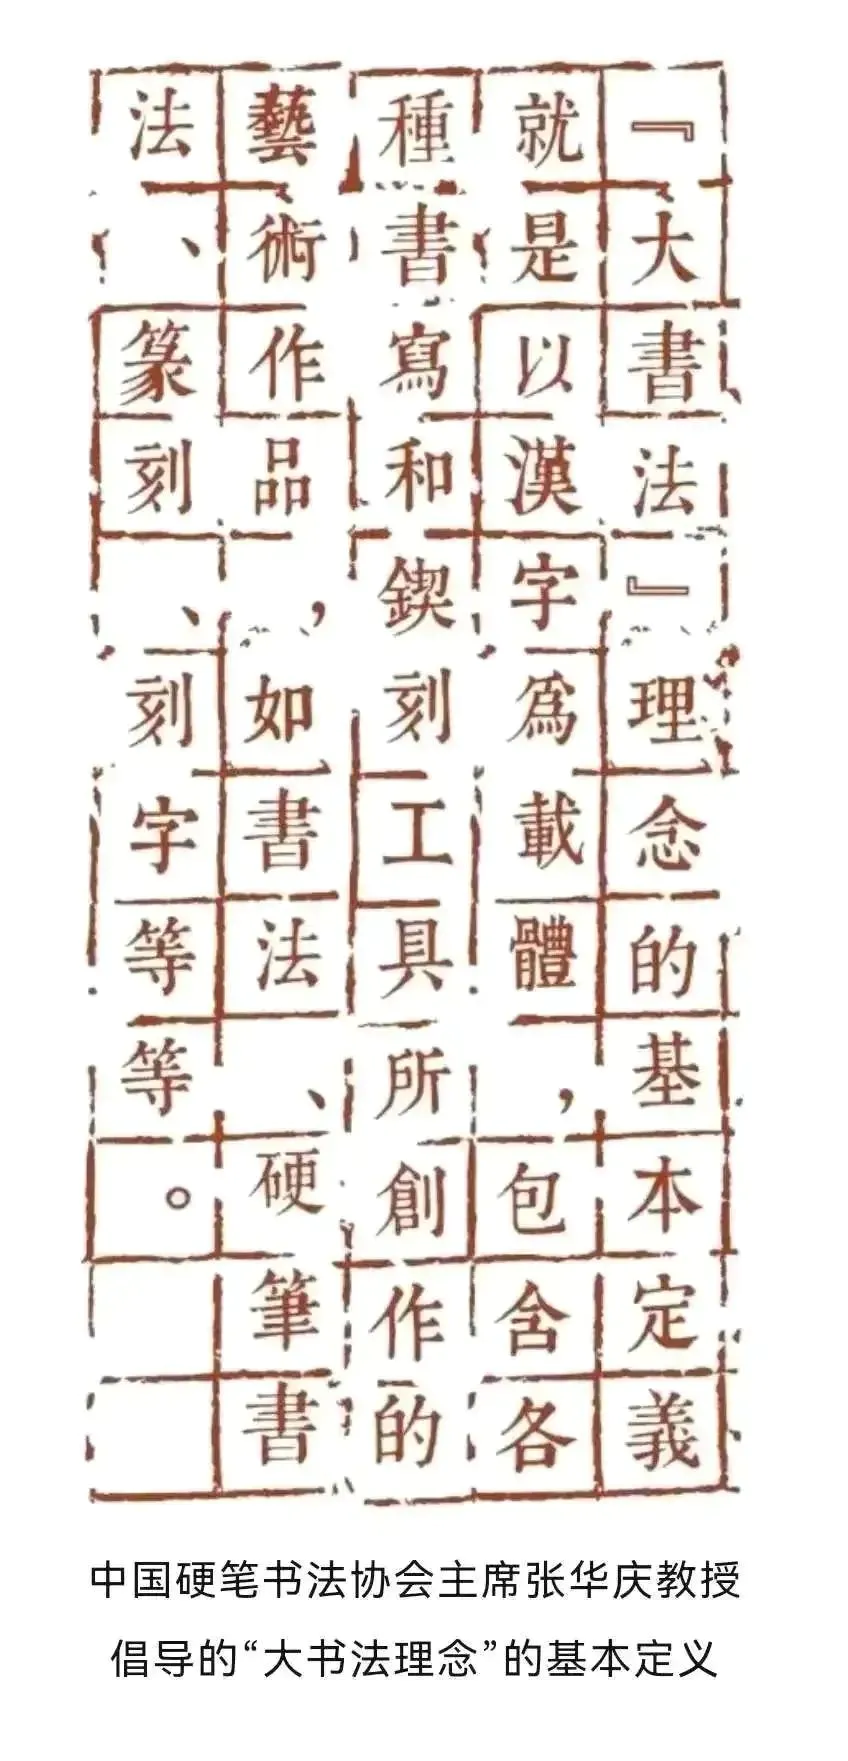 『大書法』理念的基本定義
就是以漢字爲載體，包含各
種書寫和鍥刻工具所創作的
藝術作品，如書法、硬筆書
法、篆刻、刻字等等。
中国硬笔书法协会主席张华庆教授
倡导的“大书法理念”的基本定义